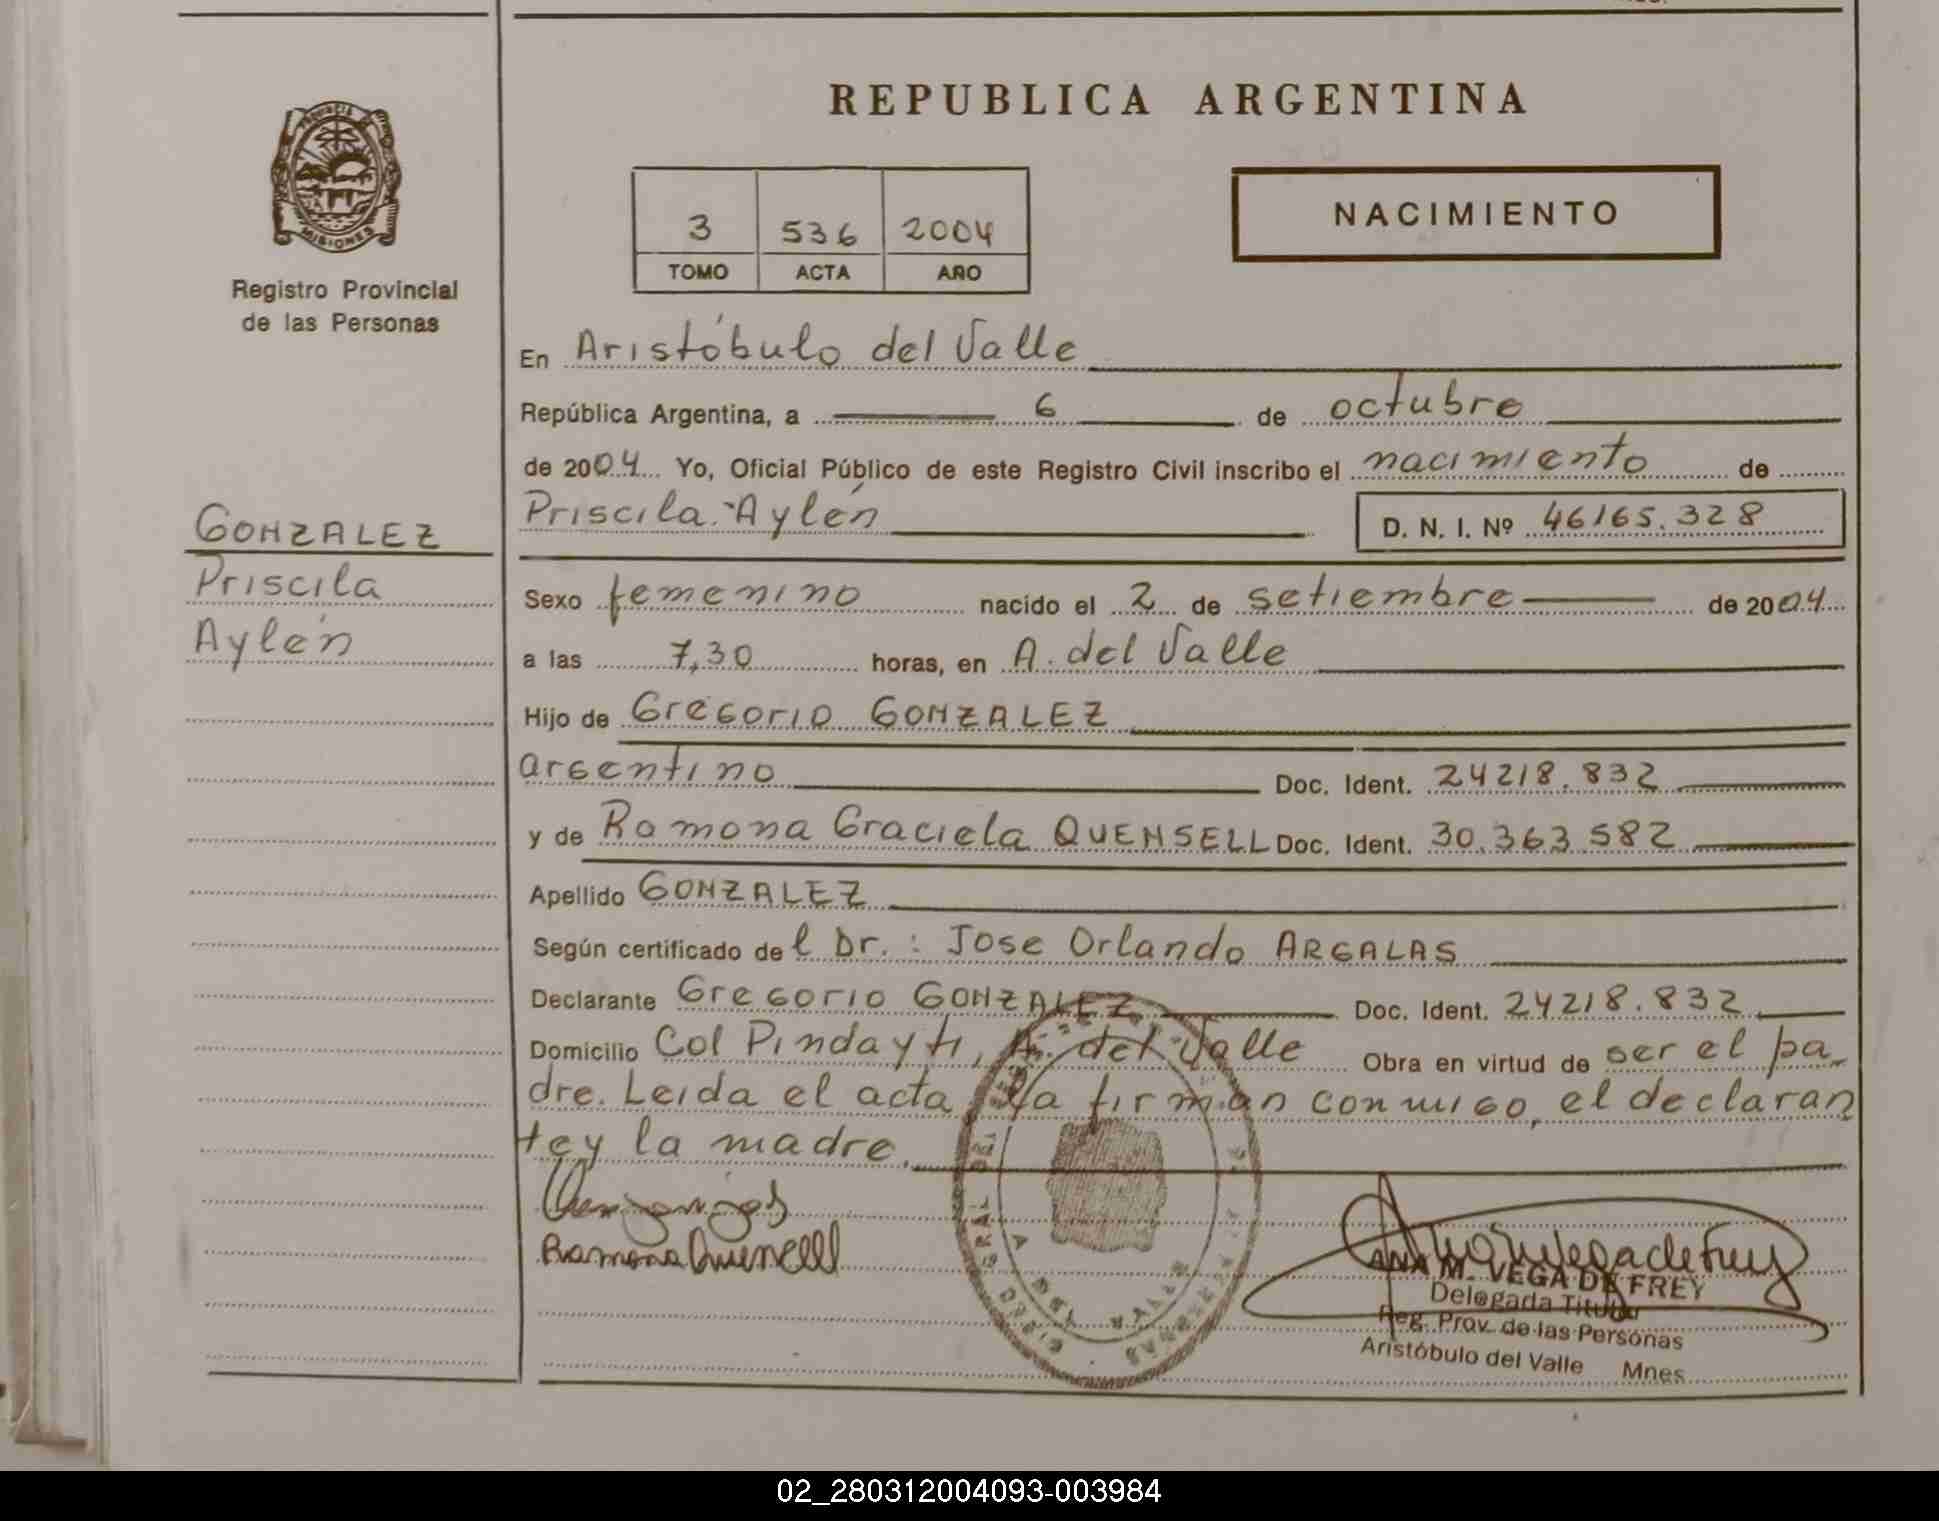 REPUBLICA ARGENTINA
PROVINCIA DE
MISIONES
Registro Provincial
de las Personas
3 536 2004
TOMO ACTA AÑO
NACIMIENTO
En Aristóbulo del Valle
República Argentina, a 6 de octubre
de 2004 Yo, Oficial Público de este Registro Civil inscribo el nacimiento de
Priscila Aylén D. N. I. Nº 46165.328
GONZALEZ
Priscila
Aylén
Sexo femenino nacido el 2 de setiembre de 2004
a las 7,30 horas, en A. del Valle
Hijo de Gregorio GONZALEZ
argentino Doc. Ident. 24218.832
y de Ramona Graciela QUENSELL Doc. Ident. 30.363.582
Apellido GONZALEZ
Según certificado del Dr.: Jose Orlando ARGALAS
Declarante Gregorio GONZALEZ Doc. Ident. 24218.832
Domicilio Col Pindayti, A. del Valle Obra en virtud de ser el pa
dre. Leida el acta la firman conmigo, el declaran
te y la madre.
Ramona Quensell
ANA M. VEGA DE FREY
Delegada Titular
Reg. Prov. de las Personas
Aristóbulo del Valle Mnes
02_280312004093-003984